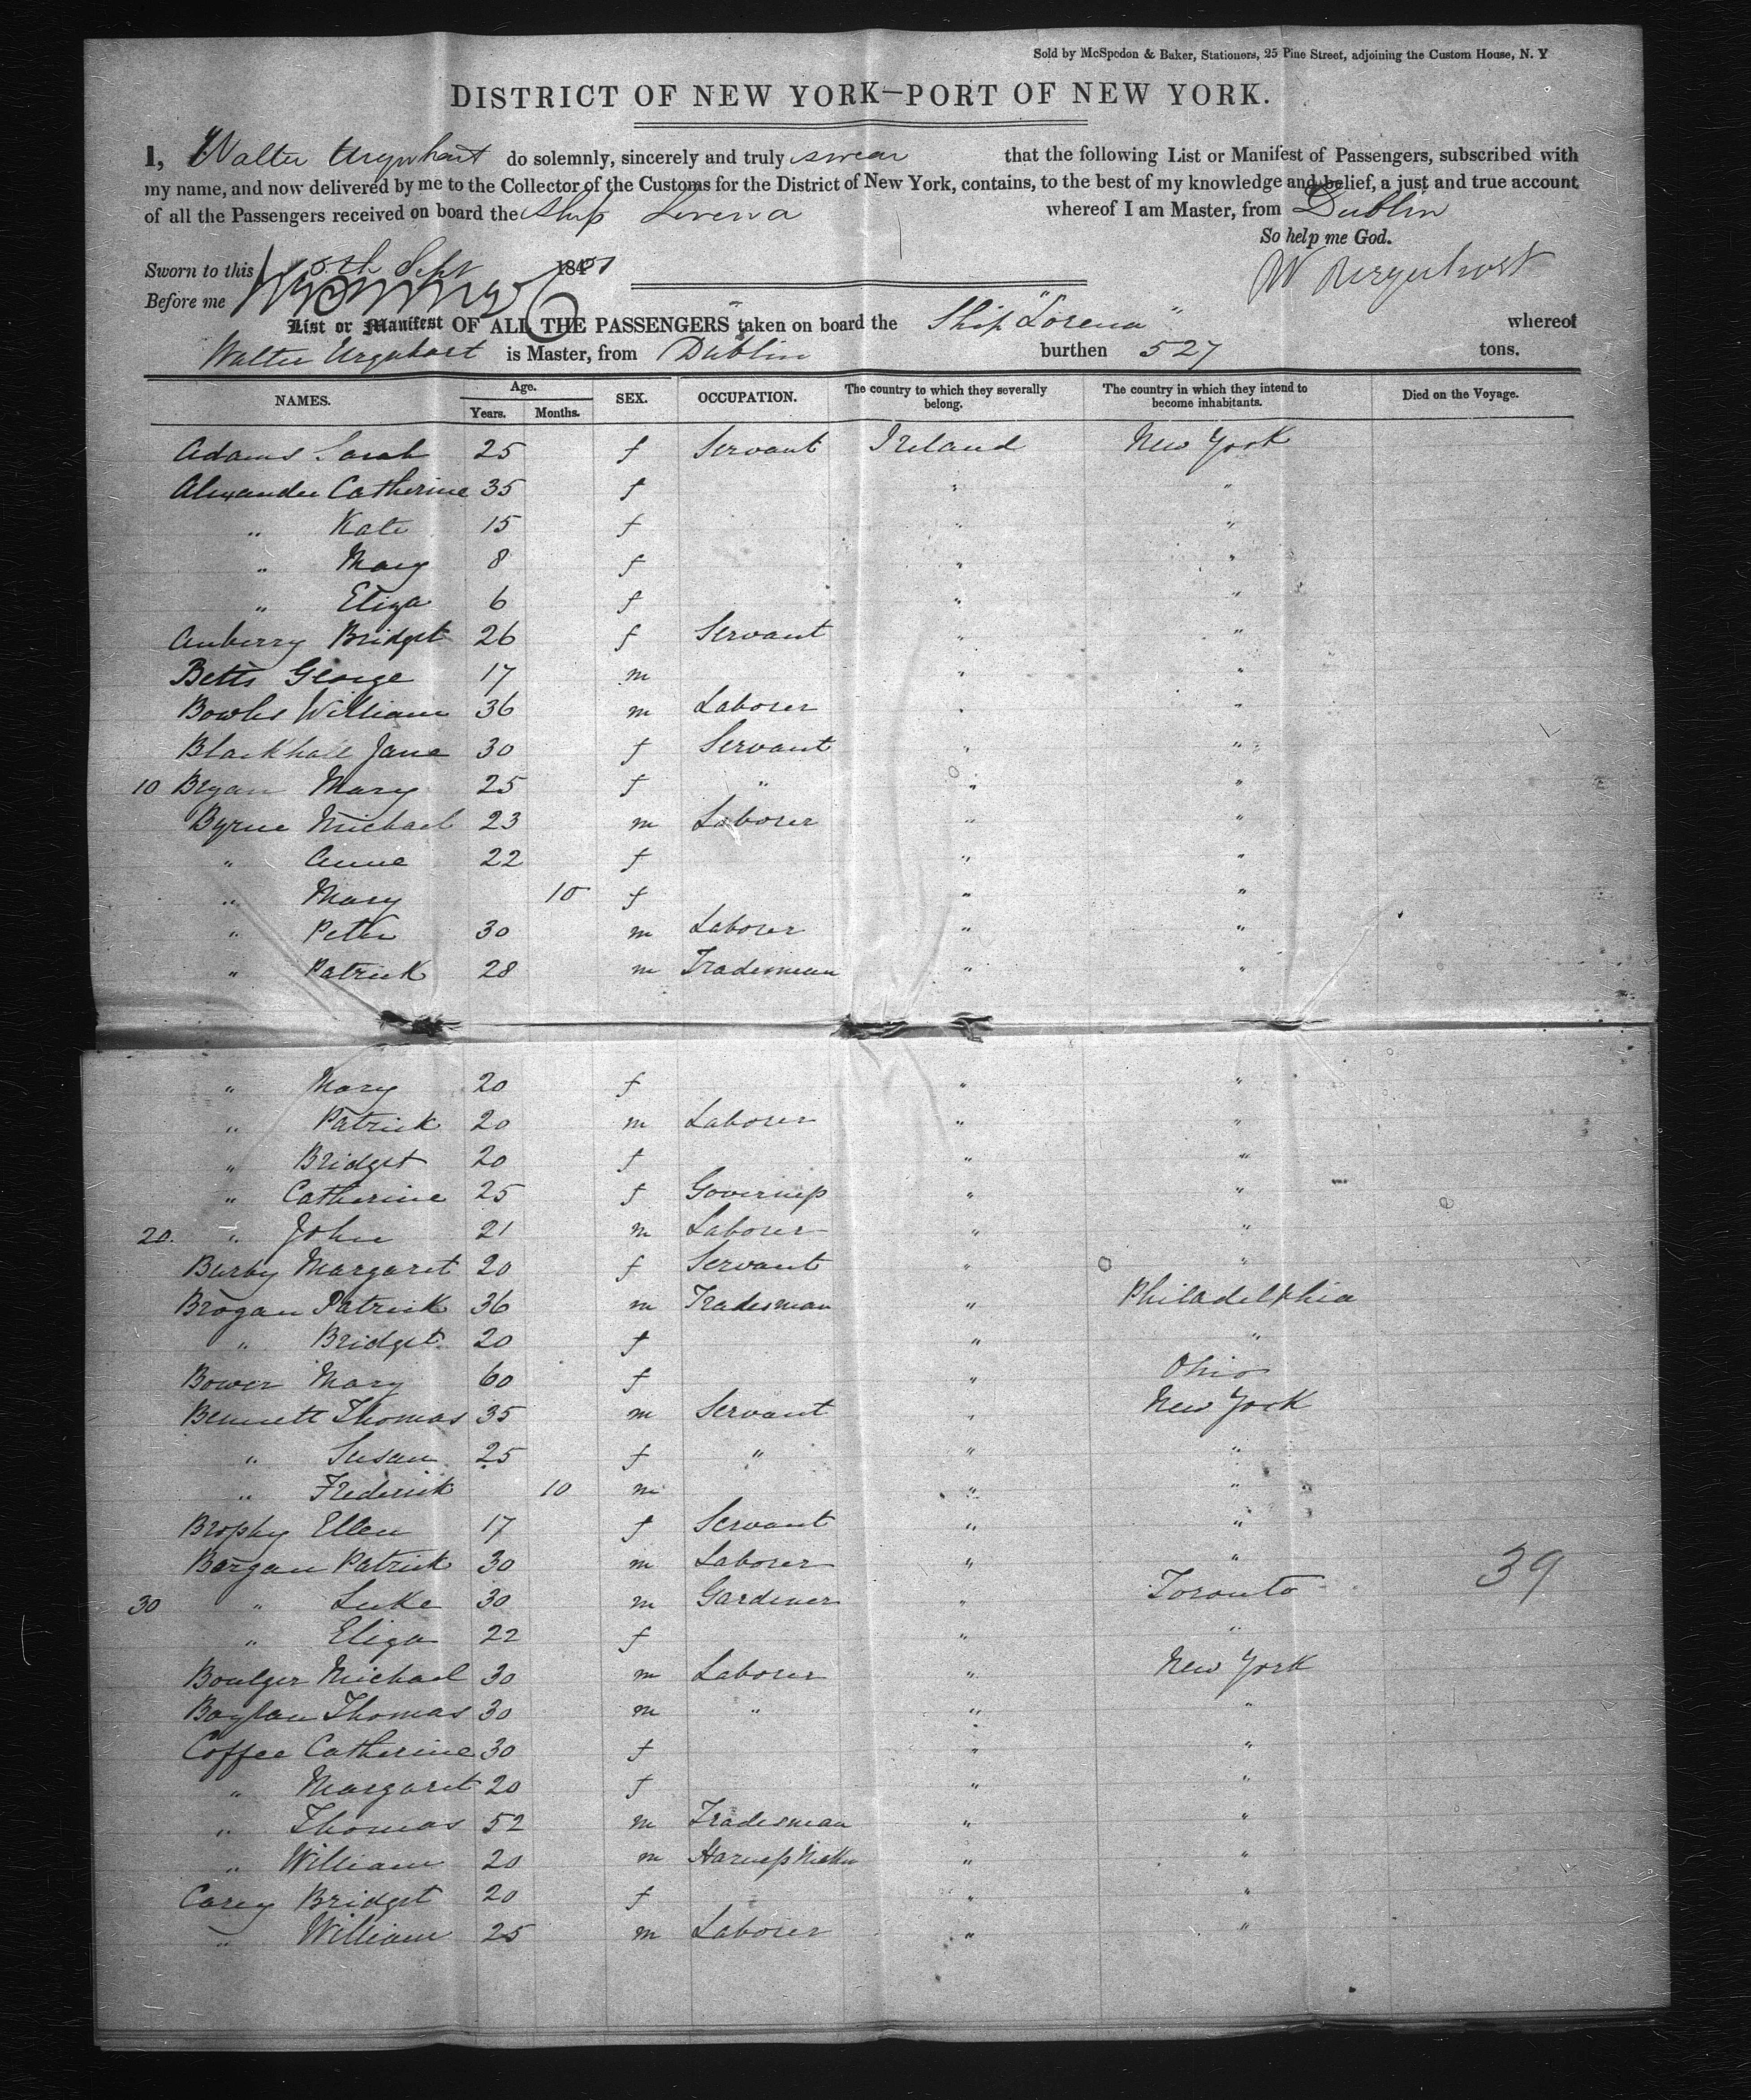 Sold by McSpedon & Baker, Stationers, 25 Pine Street, adjoining the Custom House, N. Y
DISTRICT OF NEW YORK—PORT OF NEW YORK.
I, Walter Urquhart do solemnly, sincerely and truly swear that the following List or Manifest of Passengers, subscribed with
my name, and now delivered by me to the Collector of the Customs for the District of New York, contains, to the best of my knowledge and belief, a just and true account
of all the Passengers received on board the Ship Lorena whereof I am Master, from Dublin
So help me God.
Sworn to this 5th Sept 185 W Urquhart
Before me
List or Manifest OF ALL THE PASSENGERS taken on board the Ship "Lorena" whereof
Walter Urquhart is Master, from Dublin burthen 527 tons.
NAMES. Age. Years. Months. SEX. OCCUPATION. The country to which they severally belong. The country in which they intend to become inhabitants. Died on the Voyage.
Adams Sarah 25 f Servant Ireland New York
Alexander Catherine 35 f " "
" Kate 15 f " "
" Mary 8 f " "
" Eliza 6 f " "
Anberry Bridget 26 f Servant " "
Betts George 17 m " "
Bowles William 36 m Laborer " "
Blackhall Jane 30 f Servant " "
10 Bryan Mary 25 f " " "
Byrne Michael 23 m Laborer " "
" Anne 22 f " "
" Mary 10 f " "
" Peter 30 m Laborer " "
" Patrick 28 m Tradesman " "
" Mary 20 f " "
" Patrick 20 m Laborer " "
" Bridget 20 f " "
" Catherine 25 f Governess " "
20. " John 21 m Laborer " "
Burby Margaret 20 f Servant " "
Brogan Patrick 36 m Tradesman " Philadelphia
" Bridget 20 f " "
Bower Mary 60 f " Ohio
Bennett Thomas 35 m Servant " New York
" Susan 25 f " " "
" Frederick 10 m " "
Brophy Ellen 17 f Servant " "
Bergan Patrick 30 m Laborer " " 39
30 " Luke 30 m Gardener " Toronto
" Eliza 22 f " "
Boulger Michael 30 m Laborer " New York
Boylan Thomas 30 m " " "
Coffee Catherine 30 f " "
" Margaret 20 f " "
" Thomas 52 m Tradesman " "
" William 20 m Harness Maker " "
Carey Bridget 20 f " "
" William 25 m Laborer " "